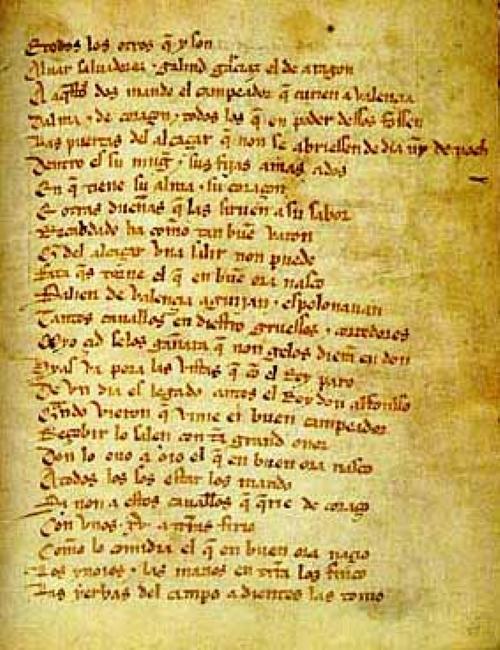 E todos los otros q̃ y son
Aluar saluadorez · galind garciaz el de aragon
A aq̃stos dos mando el campeador q̃ curien a valencia
Dalma · de coraçon · todos los q̃ en poder dessos fossen
Las puertas del alcaçar q̃ non se abriessen de dia nȷ̃ de noch
Dentro es su mugˀ · sus fijas amas ados
En q̃ tiene su alma · su coraçon
E otras dueñas q̃ las siruen a su sabor
Recabdado ha como tan buẽ varon
Q̃ del alcaçar vna salir non puede
Fata q̃s torne el q̃ en buẽ ora nasco
Salien de valencia aguijan · espolonauan
Tantos cauallos en diestro gruessos · corredores
Myo çid selos gañara q̃ non gelos dierã en don
Hyas va pora las vistas q̃ cõ el Rey paro
De vn dia es legado antes el Rey don alfonsso
Q̃ndo vieron q̃ vinie el buen campeador
Reçebir lo salen con tã grand onor
Don lo ouo a oio el q̃ en buen ora nasco
A todos los sos estar los mando
Si non a estos caualłos q̃ q̃rie de coraçõ
Con vnos .xv. a tirãs firio
Como lo comidia el q̃ en buen ora naçio
Los ynoios · las manos en tr̃ra los finco
Las yerbas del campo a dientes las tomo